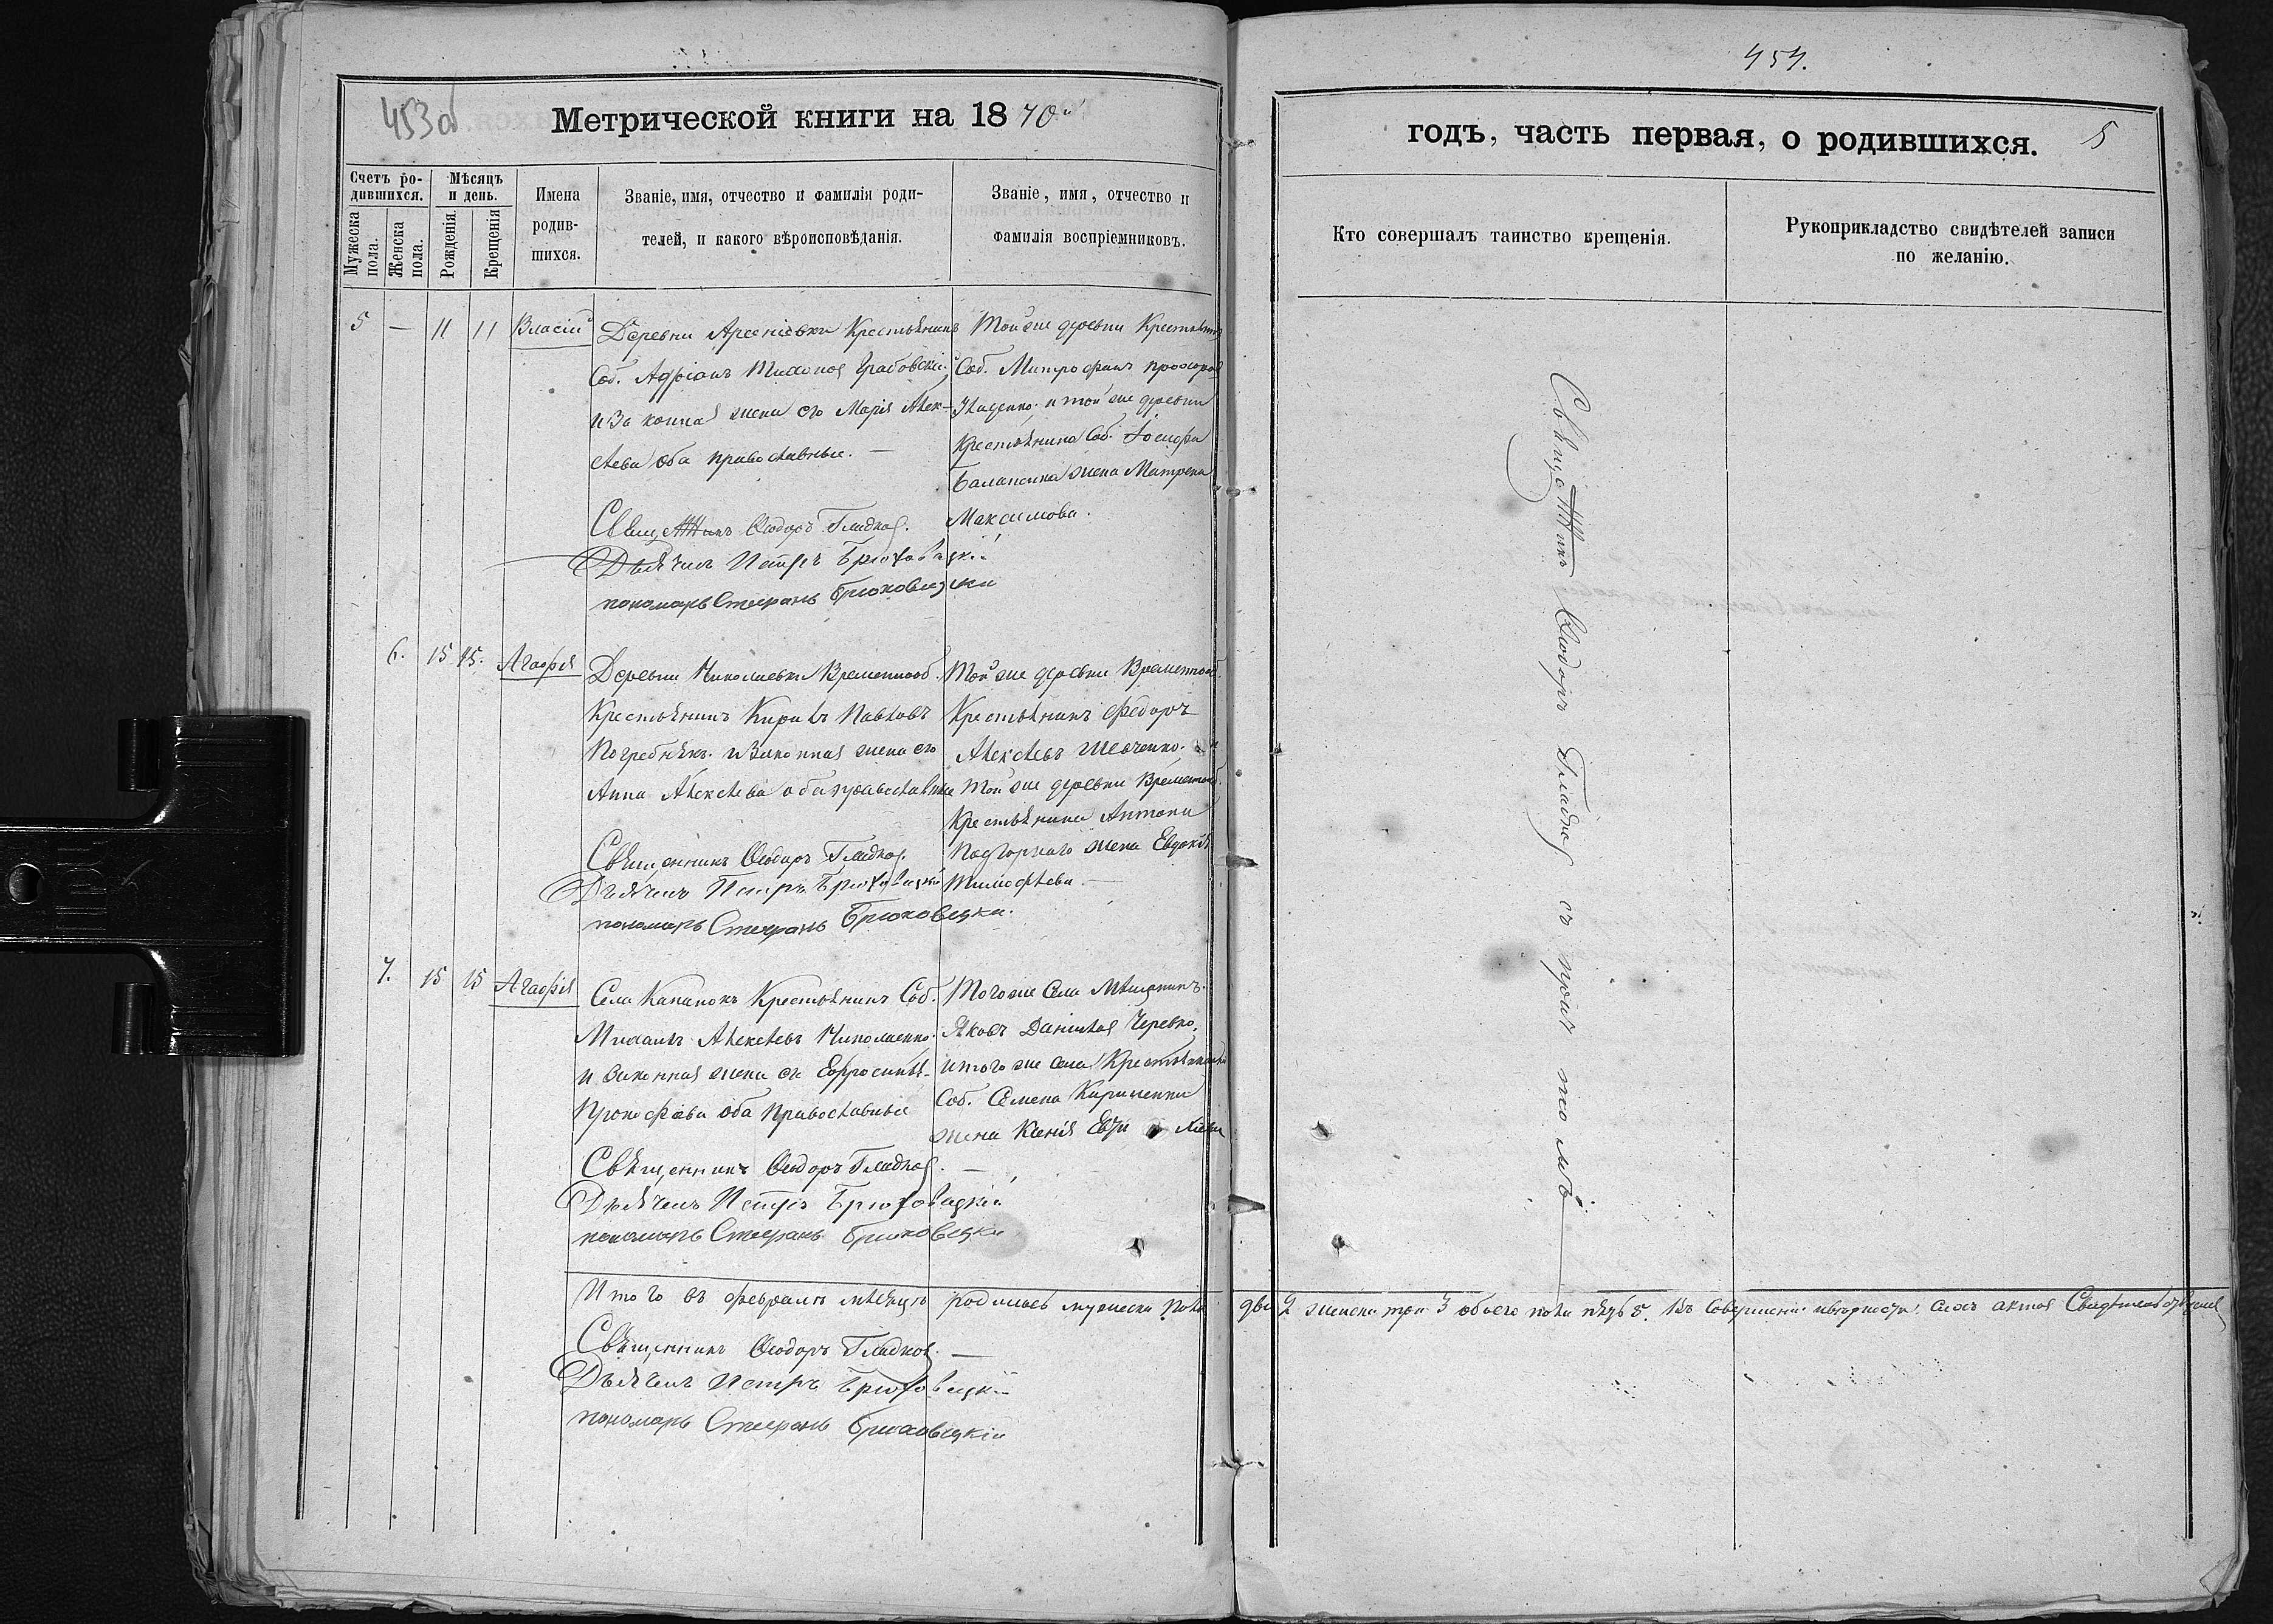 453об
Метрической книги на 1870й
Счетъ ро-
дившихся.
Мужеска
пола.
Женска
пола.
Мѣсяцъ
и день.
Рожденія.
Крещенія
Имена
родив-
шихся.
Званіе, имя, отчество и фамилія роди-
телей, и какого вѣроисповѣданія.
Званіе, имя, отчество и
фамилія воспріемниковъ.
5 — 11 11 Власій
Деревни Арсеніевки Крестьянинъ
Соб. Адріанъ Тихоновъ Грабовскій
и Законная жена его Марія Алек-
сѣева оба православные. —
Священникъ Ѳеодоръ Гладков.
Дьячекъ Петръ Брюховецкій
пономарь Стефанъ Брюховецкій
Той же деревни Крестьянинъ
Соб. Митрофанъ Прохоров
и той же деревни
Крестьянина Соб. Іосифа
жена Матрена
Максимова.
6. 15 15. Агафія
Деревни Николаевки Временнооб.
Крестьянинъ Кирилъ Павловъ
Погребнякъ. и Законная жена его
Анна Алексѣева оба православные
Священникъ Ѳеодоръ Гладков.
Дьячекъ Петръ Брюховецкій
пономарь Стефанъ Брюховецкій.
Той же деревни Временнооб.
Крестьянинъ Федоръ
Алексѣевъ Шевченко. и
той же деревни Временнооб.
Крестьянина Антона
Подгорнаго жена Евдокія
Тимофѣева —
7. 15 15 Агафія
Села Капинокъ Крестьянинъ Соб.
Михаилъ Алексѣевъ Николаенко.
и законная жена его Ефросинія
Прокофіева оба Православные
Священникъ Ѳеодоръ Гладков. —
Дьячекъ Петръ Брюховецкій
пономарь Стефанъ Брюховецкій
Того же Села Мѣщанинъ
Яковъ Даніиловъ Черевко.
и того же села Крестьянина
Соб. Семена Кириченка
жена Ксенія
Итого въ февралѣ мѣсяцѣ родилось мужеска пола два 2 женска три 3 обоего пола пять 5. Въ совершеніи и вѣрности сихъ актовъ Свидѣтельствуемъ
Священникъ Ѳеодоръ Гладков. —
Дьячекъ Петръ Брюховецкій
пономарь Стефанъ Брюховецкій
454.
годъ, часть первая, о родившихся. 5
Кто совершалъ таинство крещенія.
Рукоприкладство свидѣтелей записи
по желанію.
Священникъ Ѳеодоръ Гладков съ причтомъ